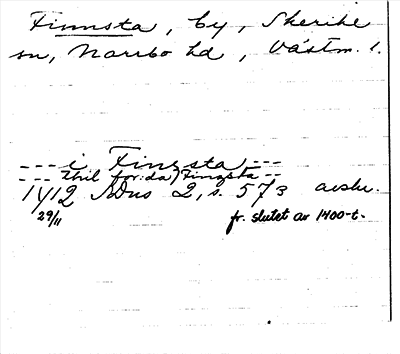 Finnsta, by, Skerike
sn, Norrbo hd, Västm. l.
--- i Finersta ---
--- thil for:da) Fingsta --
1412 SDns 2, s. 573 avskr.
29/11 fr. slutet av 1400-t.